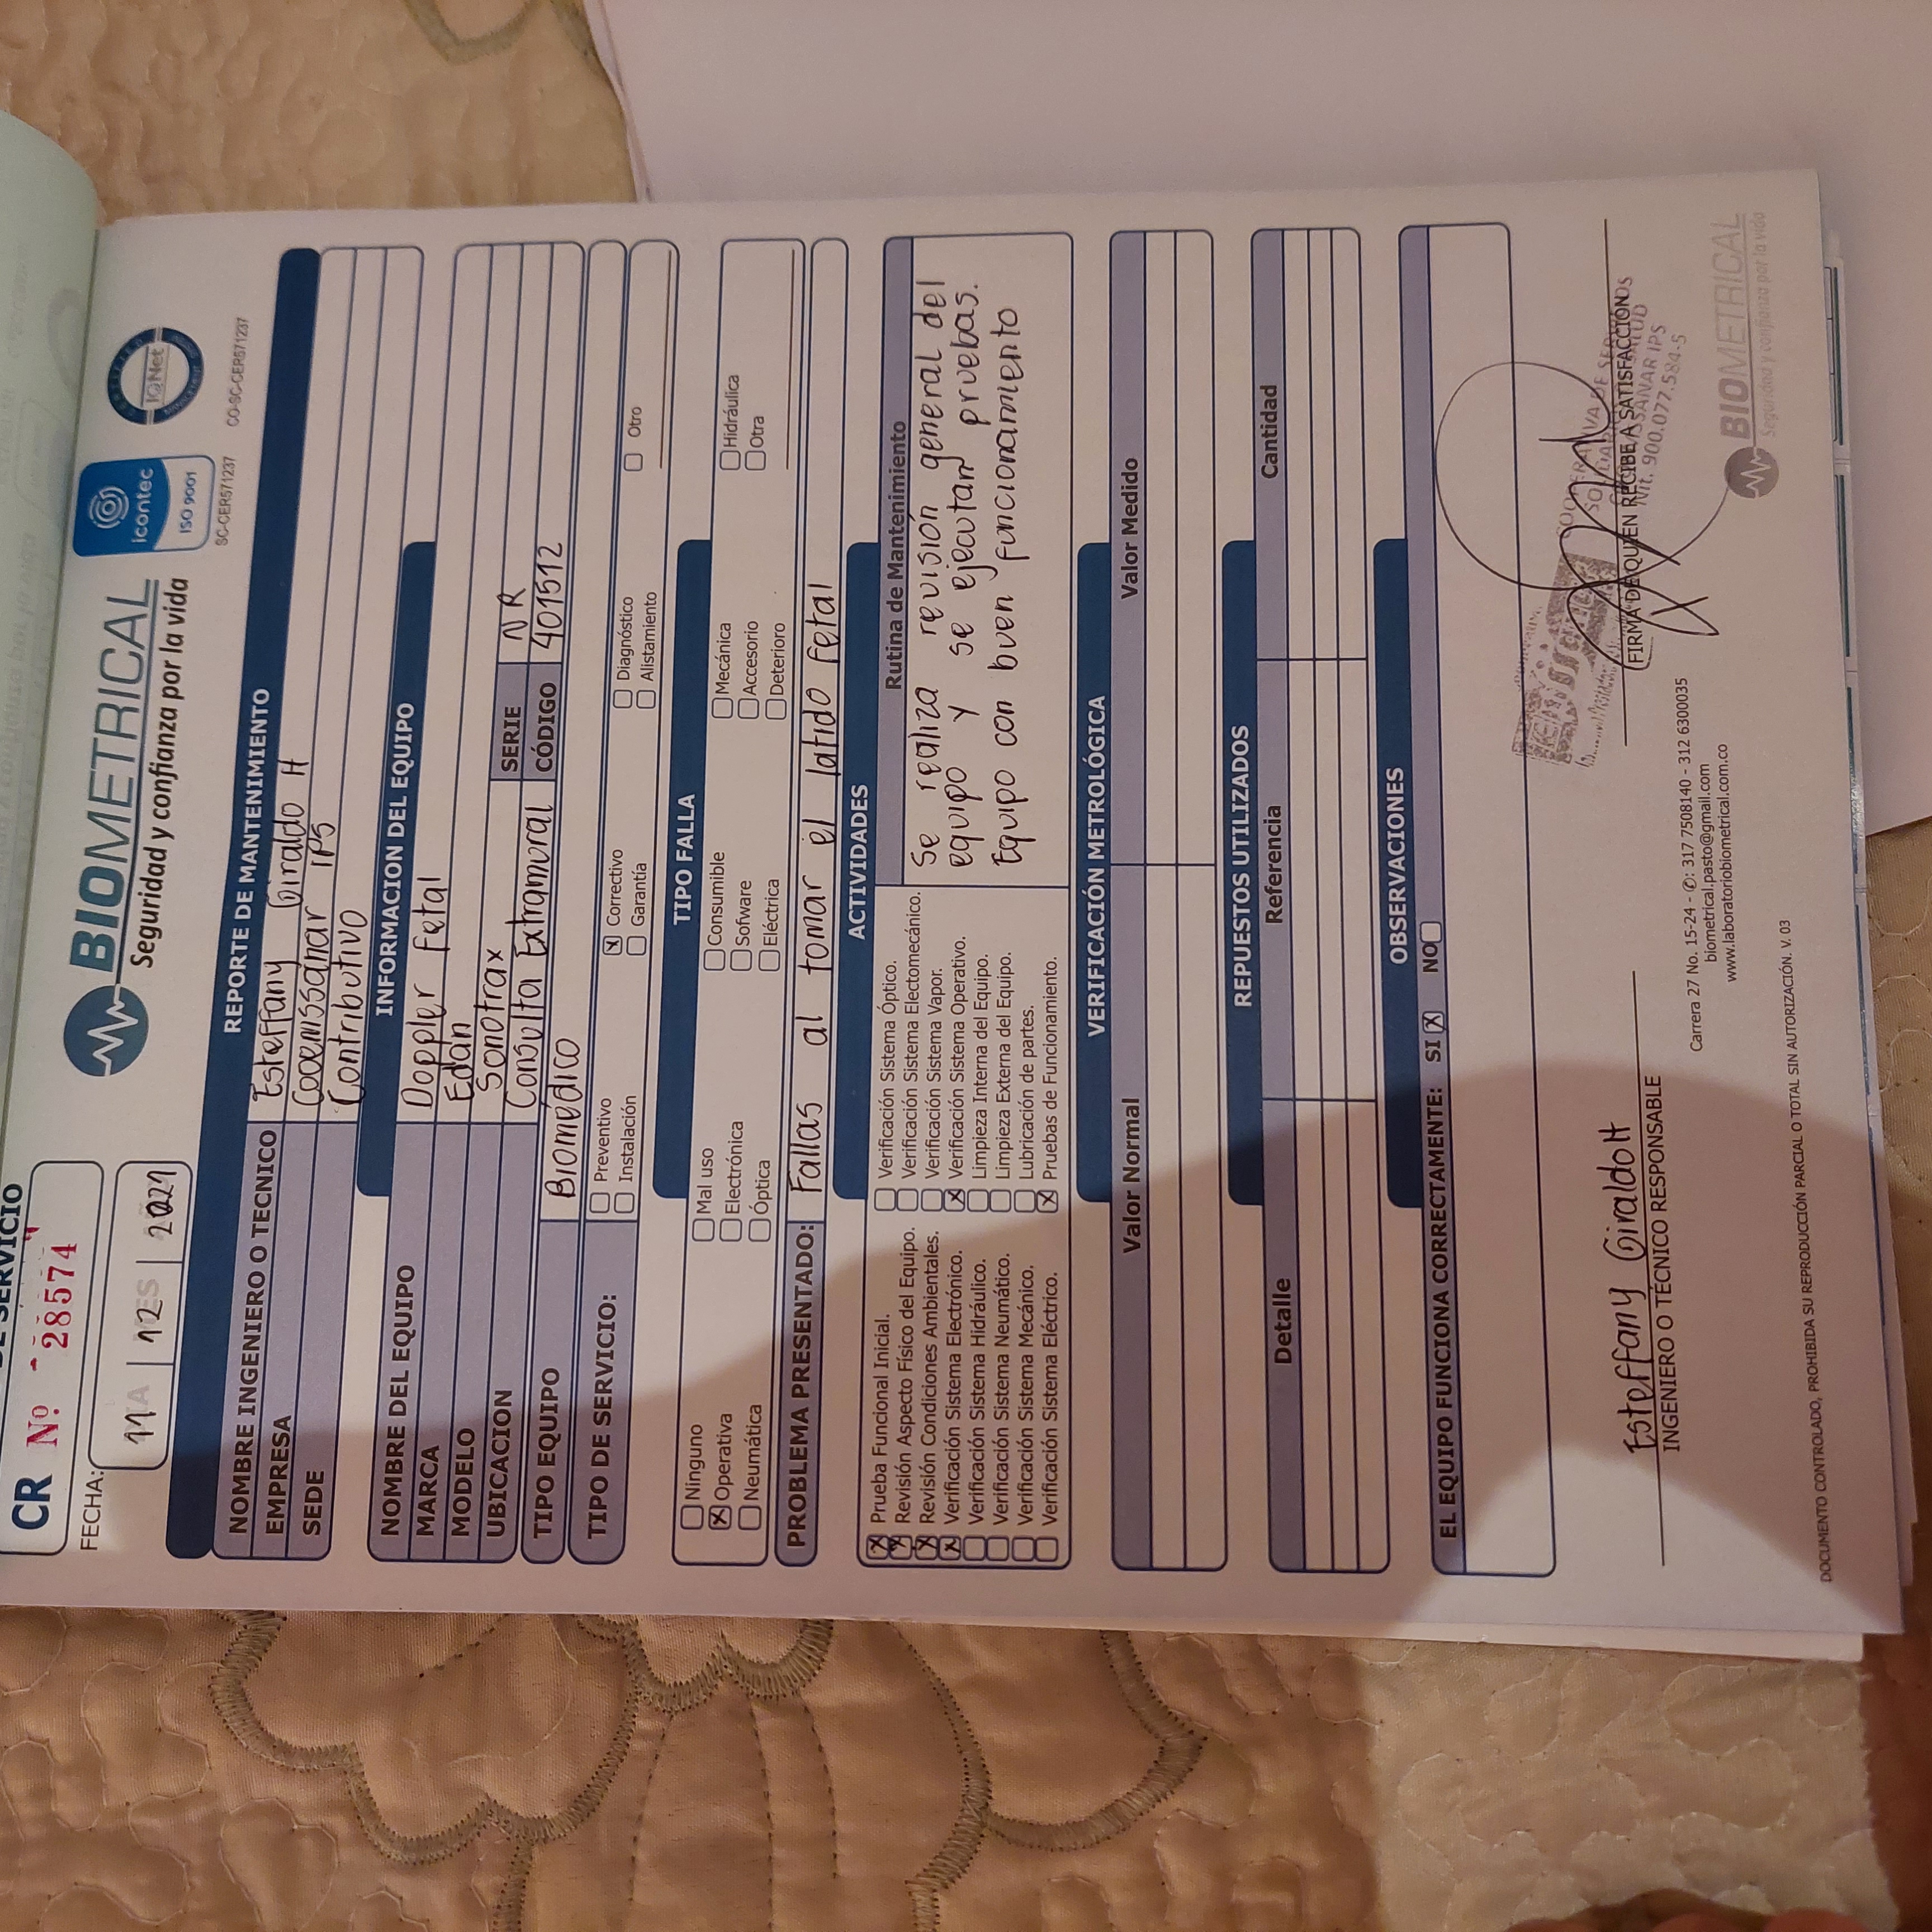 DE SERVICIO
CR Nº 28574
FECHA:
11 | 12 | 2021
BIOMETRICAL
Seguridad y confianza por la vida
icontec
ISO 9001
SC-CER571237
IQNet
CO-SC-CER571237
REPORTE DE MANTENIMIENTO
NOMBRE INGENIERO O TECNICO Esteffany Giraldo H
EMPRESA Cooemssanar IPS
SEDE Contributivo
INFORMACION DEL EQUIPO
NOMBRE DEL EQUIPO Doppler Fetal
MARCA Edan
MODELO Sonotrax SERIE NR
UBICACION Consulta Extramural CÓDIGO 401512
TIPO EQUIPO Biomédico
TIPO DE SERVICIO: Preventivo X Correctivo Diagnóstico Otro
Instalación Garantía Alistamiento
TIPO FALLA
Ninguno Mal uso Consumible Mecánica Hidráulica
X Operativa Electrónica Sofware Accesorio Otra
Neumática Óptica Eléctrica Deterioro
PROBLEMA PRESENTADO: Fallas al tomar el latido Fetal
ACTIVIDADES
X Prueba Funcional Inicial.
X Revisión Aspecto Físico del Equipo.
X Revisión Condiciones Ambientales.
X Verificación Sistema Electrónico.
Verificación Sistema Hidráulico.
Verificación Sistema Neumático.
Verificación Sistema Mecánico.
Verificación Sistema Eléctrico.
Verificación Sistema Óptico.
Verificación Sistema Electomecánico.
Verificación Sistema Vapor.
X Verificación Sistema Operativo.
Limpieza Interna del Equipo.
Limpieza Externa del Equipo.
Lubricación de partes.
X Pruebas de Funcionamiento.
Rutina de Mantenimiento
Se realiza revisión general del
equipo y se ejecutan pruebas.
Equipo con buen funcionamiento
VERIFICACIÓN METROLÓGICA
Valor Normal Valor Medido
REPUESTOS UTILIZADOS
Detalle Referencia Cantidad
OBSERVACIONES
EL EQUIPO FUNCIONA CORRECTAMENTE: SI X NO
Esteffany Giraldo H
INGENIERO O TÉCNICO RESPONSABLE
COOPERATIVA DE SERVICIOS
SOLIDARIOS SALUD
IPS
Nit. 900.077.584-5
FIRMA DE QUIEN RECIBE A SATISFACCIÓN
Carrera 27 No. 15-24 - ✆: 317 7508140 - 312 6300035
biometrical.pasto@gmail.com
www.laboratoriobiometrical.com.co
BIOMETRICAL
Seguridad y confianza por la vida
DOCUMENTO CONTROLADO, PROHIBIDA SU REPRODUCCIÓN PARCIAL O TOTAL SIN AUTORIZACIÓN. V. 03